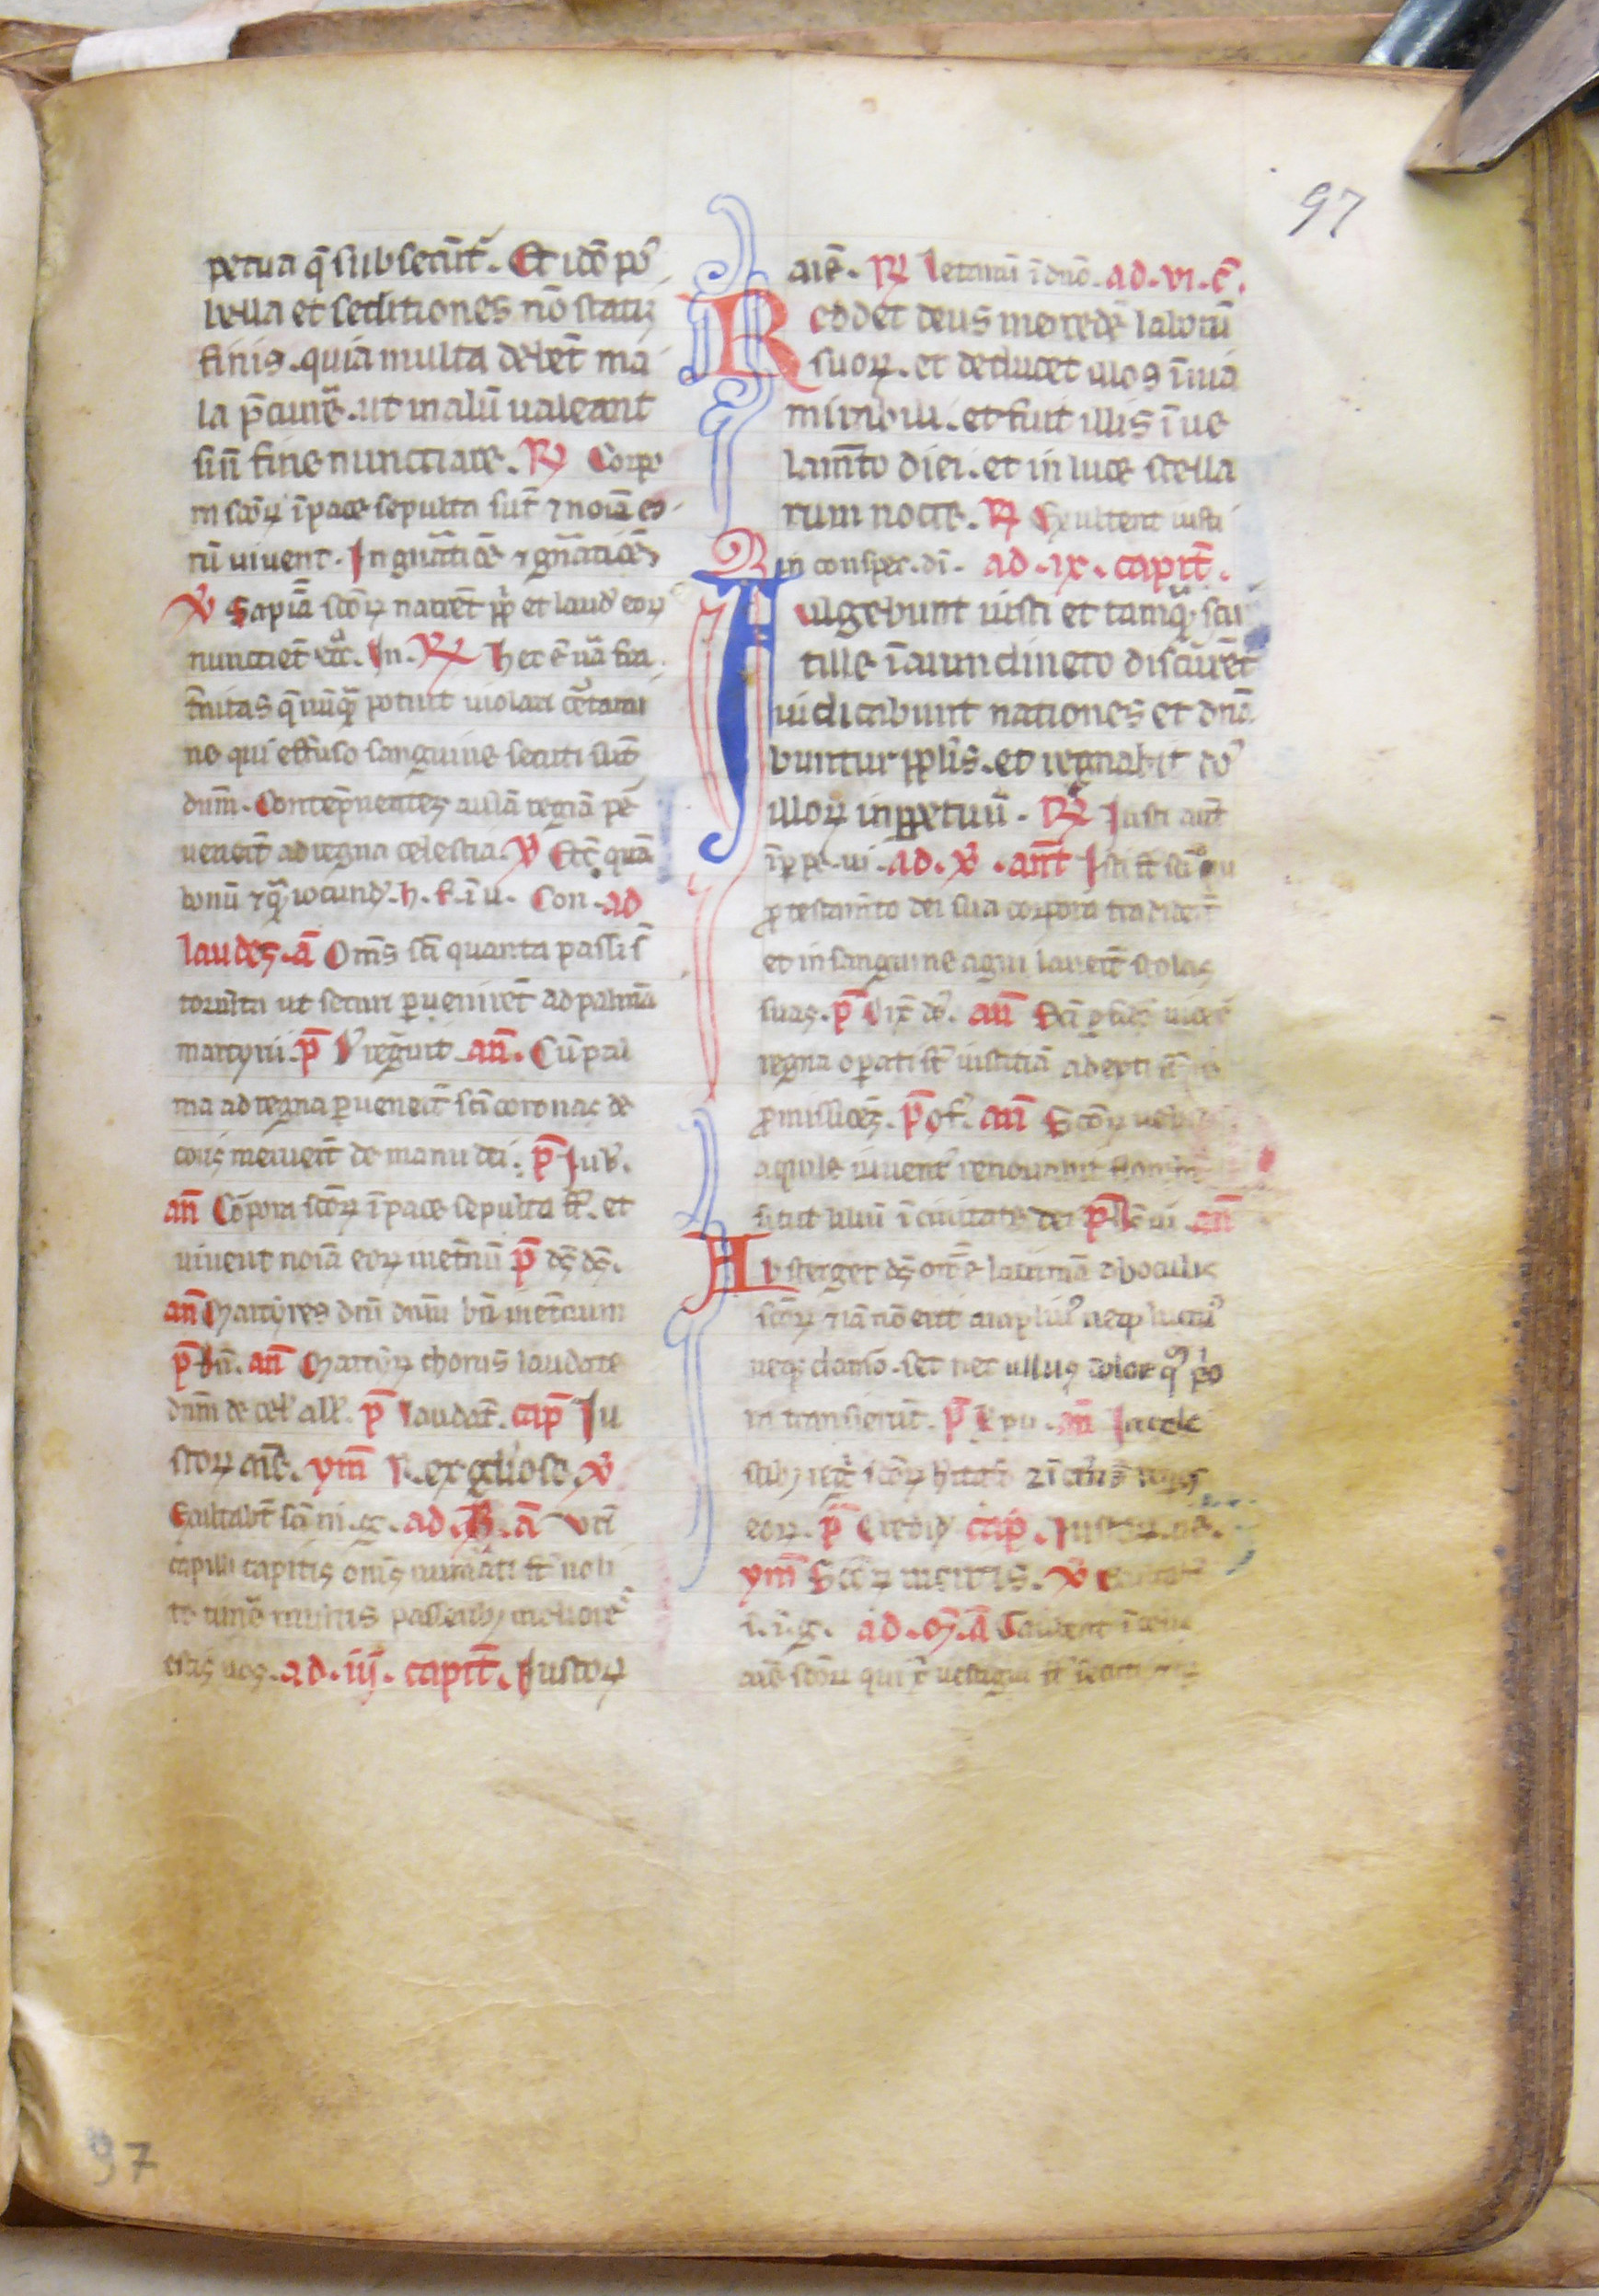 97
petua q̄ subsecūt᷑. Et idō pꝰ
bella et seditiones nō statī
finis. quia multa debēt ma
la p̄curr̄e. ut malū ualeant
sui fine nunctiare. ℟ Corpo
ra scōꝝ ī pace sepulta sūt ⁊ noīa eo
rū uiuent. In gn̄atiōe ⁊ gn̄atiōēs
℣ Sapiā scōꝝ narrēt ppl̄i et laud̾ eoꝝ
nunctiet ecc̄. In. ℟ hec ē uā fra
t̄nitas q̄ nūq̄ potuit uiolari c̄tami
ne qui effuso sanguine secuti sūt
dnm̄. Contēpnentes aulā regiā pe
uenerūt ad regna celestia. ℣ Ecc̄ quā
bonū ⁊ q̄ iocund̾. h. f. ī u. Con. ad
laudes. a᷑ Om̄s sc̄i quanta passi s̄
tormēta ut securi ꝑuenirēt ad palmā
martyrii. p̄ D̄ regnauit. an̄. Cū pal
ma ad regna ꝑuenerūt sc̄i coronas de
coris meruerūt de manu dei. p̄ Iub̾.
an̄ Corpora scōꝝ ī pace sepulta st̄. et
uiuent noīa eoꝝ inet̄nū p̄ ds̄ ds̄.
an̄ Martyres dn̄i dnm̄ bn̄ inet̄num
p̄ Bn̄. an̄ Martyrū chorus laudate
dnm̄ de cel̾ all̾. p̄ laudat̄. cap̄ Iu
stoꝝ aīe. ym̄ Rex gliose. ℣
Exultabt̄ sc̄i ni. gl̄. ad. B̄. a᷑ Urī
capilli capitis om̄s nūerati st̄ noli
te timē multis passeribꝫ meliores
estis uos. ad. iij. capit̄. Iustoꝝ
aīe. ℟ Letamī ī dnō. ad. vi. c̄.
Reddet deus mercedē laborū
suoꝝ. et deducet illos ī uia
mirabili. et fuit illis ī ue
lam̄to diei. et in luce stella
rum nocte. ℟ Exultent iusti
in conspec. dī. ad. ix. capit̄.
Fulgebunt iusti et tamq̄ sci
tille ī arundineto discurrēt
iudicabunt nationes et dn̄a
buntur ppl̄is. et regnabit dn̄s
illoꝝ inꝑpetuū. ℟ Iusti aut̄
īꝑpe. ui. ad. ℣. ant̄ Isti st̄ sc̄i qui
ꝓ testam̄to dei sua corpora tradider̄t
et in sanguine agni lauer̄t stolas
suas. p̄ Dix̄ dn̄s. an̄ Sc̄i ꝑ fidē uicer̄t
regna oꝑati st̄ iustitiā adepti st̄
ꝓmissiōēs. p̄ Cōf̾. an̄ Scōꝝ uel
aquile iuuent̾ renouabit̾
sicut liliū ī ciuitate dei p̄ an̄
Absterget ds̄ om̄ē lacrimā ab oculis
scōꝝ ⁊ iā nō erit ampliꝰ neqꝫ luctꝰ
neqꝫ clamor. set nec ullus dolor qm̄ pꝰo
ra transierūt. p̄ an̄ In cele
stibꝫ regn̄ scōꝝ hītatō
eoꝝ. p̄ Credid̾ cap̄. Iustoꝝ. aīe.
ym̄ Scōꝝ meritis. ℣
s. i. g. ad. m̄. a᷑ Gaudent ī celis
aīe scōꝝ qui x̄ uestigia st̄ secuti
97